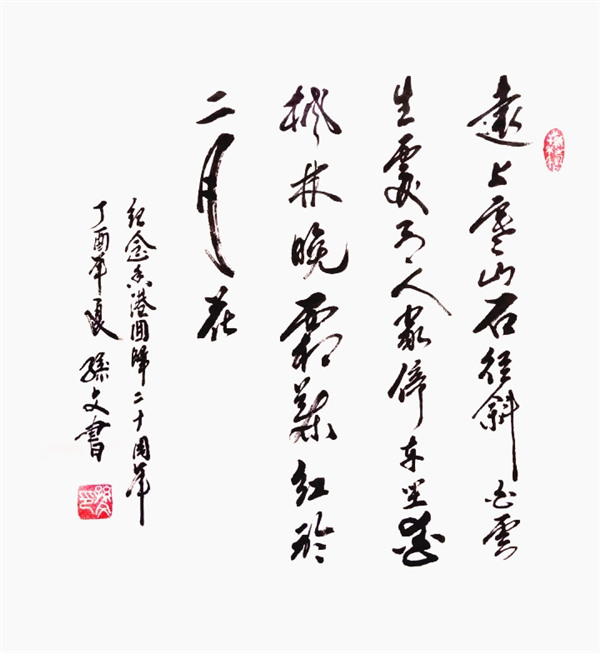 遠上寒山石徑斜白雲
生處有人家停車坐愛
楓林晚霜葉紅於
二月花
紀念香港回歸二十周年
丁酉年夏 孫文書